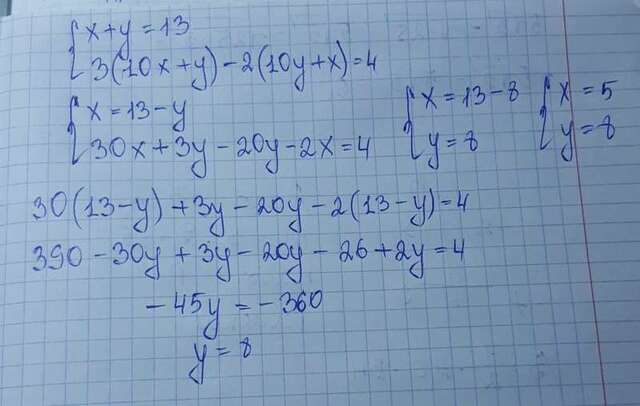 { x+y=13
{ 3(10x+y)-2(10y+x)=4
{ x=13-y
{ 30x+3y-20y-2x=4
{ x=13-8
{ y=8
{ x=5
{ y=8
30(13-y)+3y-20y-2(13-y)=4
390-30y+3y-20y-26+2y=4
-45y=-360
y=8